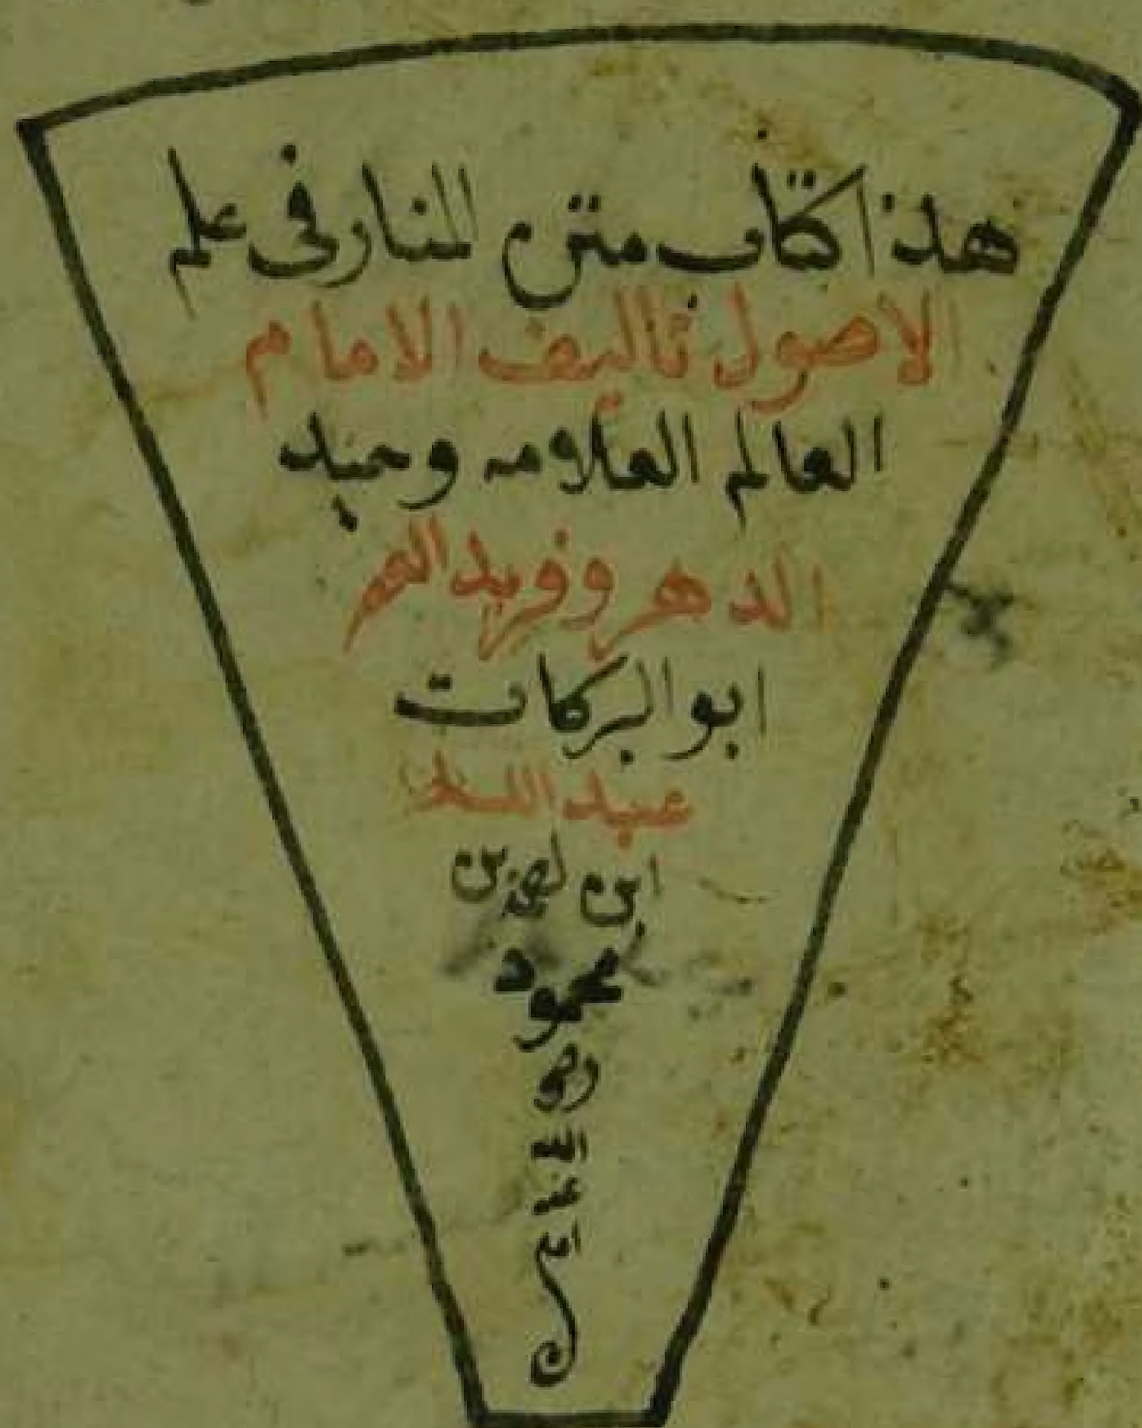 هذا كتاب متن المنار فى علم
الاصول تاليف الامام
العالم العلامه وحيد
الدهر وفريد العصر
ابو البركات
عبد الله
ابن احمد بن
محمود
رضى
الله
عنه
امين